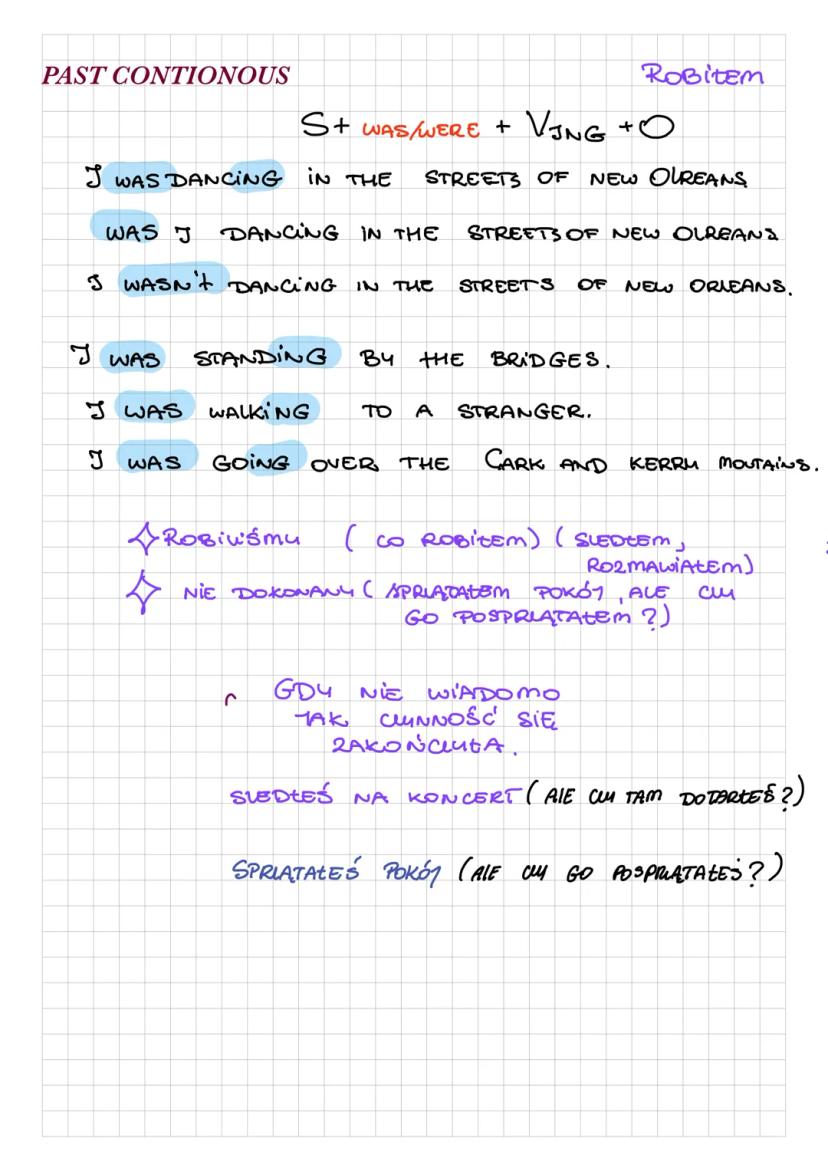 PAST CONTIONOUS
ROBiŁEM
S+ WAS/WERE + VING + O
I WAS DANCING IN THE STREETS OF NEW OLREANS
WAS I DANCING IN THE STREETS OF NEW OLREANS
I WASN't DANCING IN THE STREETS OF NEW ORLEANS.
I WAS STANDING BY tHE BRIDGES.
I WAS WALKING TO A STRANGER.
I WAS GOING OVER THE CARK AND KERRY MOUTAINS.
ROBILIŚMY ( CO ROBIŁEM) ( SZEDŁEM,
ROZMAWIAŁEM)
NIE DOKONANY ( SPRZĄTAŁEM POKÓJ, ALE CZY
GO POSPRZĄTAŁEM ?)
GDY NIE WIADOMO
JAK CZYNNOŚĆ SIĘ
ZAKOŃCZYŁA.
SZEDŁEŚ NA KONCERT ( ALE CZY TAM DOTARŁEŚ?)
SPRZĄTAŁEŚ POKÓJ (ALE CZY GO POSPRZĄTAŁEŚ?)